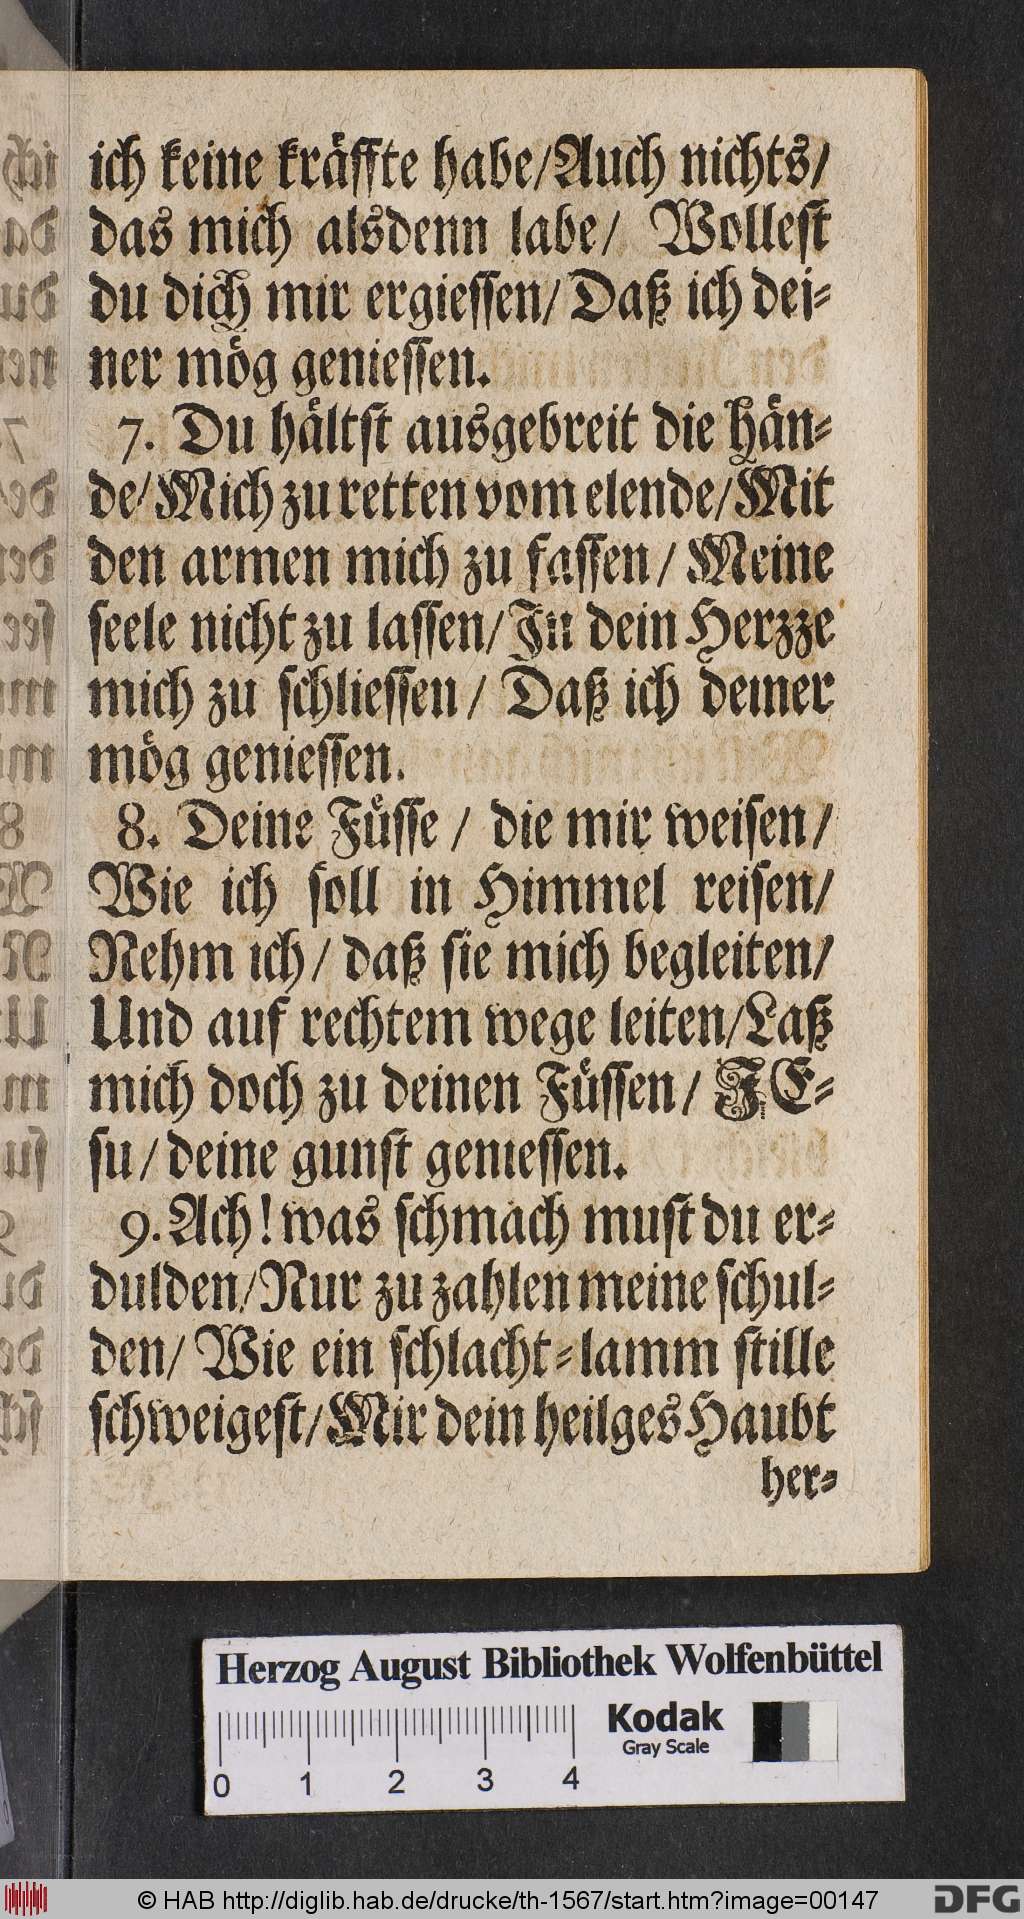 ich keine kräffte habe/Auch nichts/
das mich alsdenn labe/ Wollest
du dich mir ergiessen/Daß ich dei-
ner mög geniessen.
7. Du hältst ausgebreit die Hän-
de/Mich zu retten vom elende/Mit
den armen mich zu fassen/ Meine
seele nicht zu lassen/In dein Herzze
mich zu schliessen/ Daß ich deiner
mög geniessen.
8. Deine Füsse/ die mir weisen/
Wie ich soll in Himmel reisen/
Nehm ich/ daß sie mich begleiten/
Und auf rechtem wege leiten/Laß
mich doch zu deinen Füssen/ JE-
su/ deine gunst geniessen.
9. Ach! was schmach must du er-
dulden/Nur zu zahlen meine schul-
den/ Wie ein schlacht-lamm stille
schweigest/Mir dein heilges Haubt
her-
Herzog August Bibliothek Wolfenbüttel
Kodak
Gray Scale
0 1 2 3 4
© HAB http://diglib.hab.de/drucke/th-1567/start.htm?image=00147
DFG